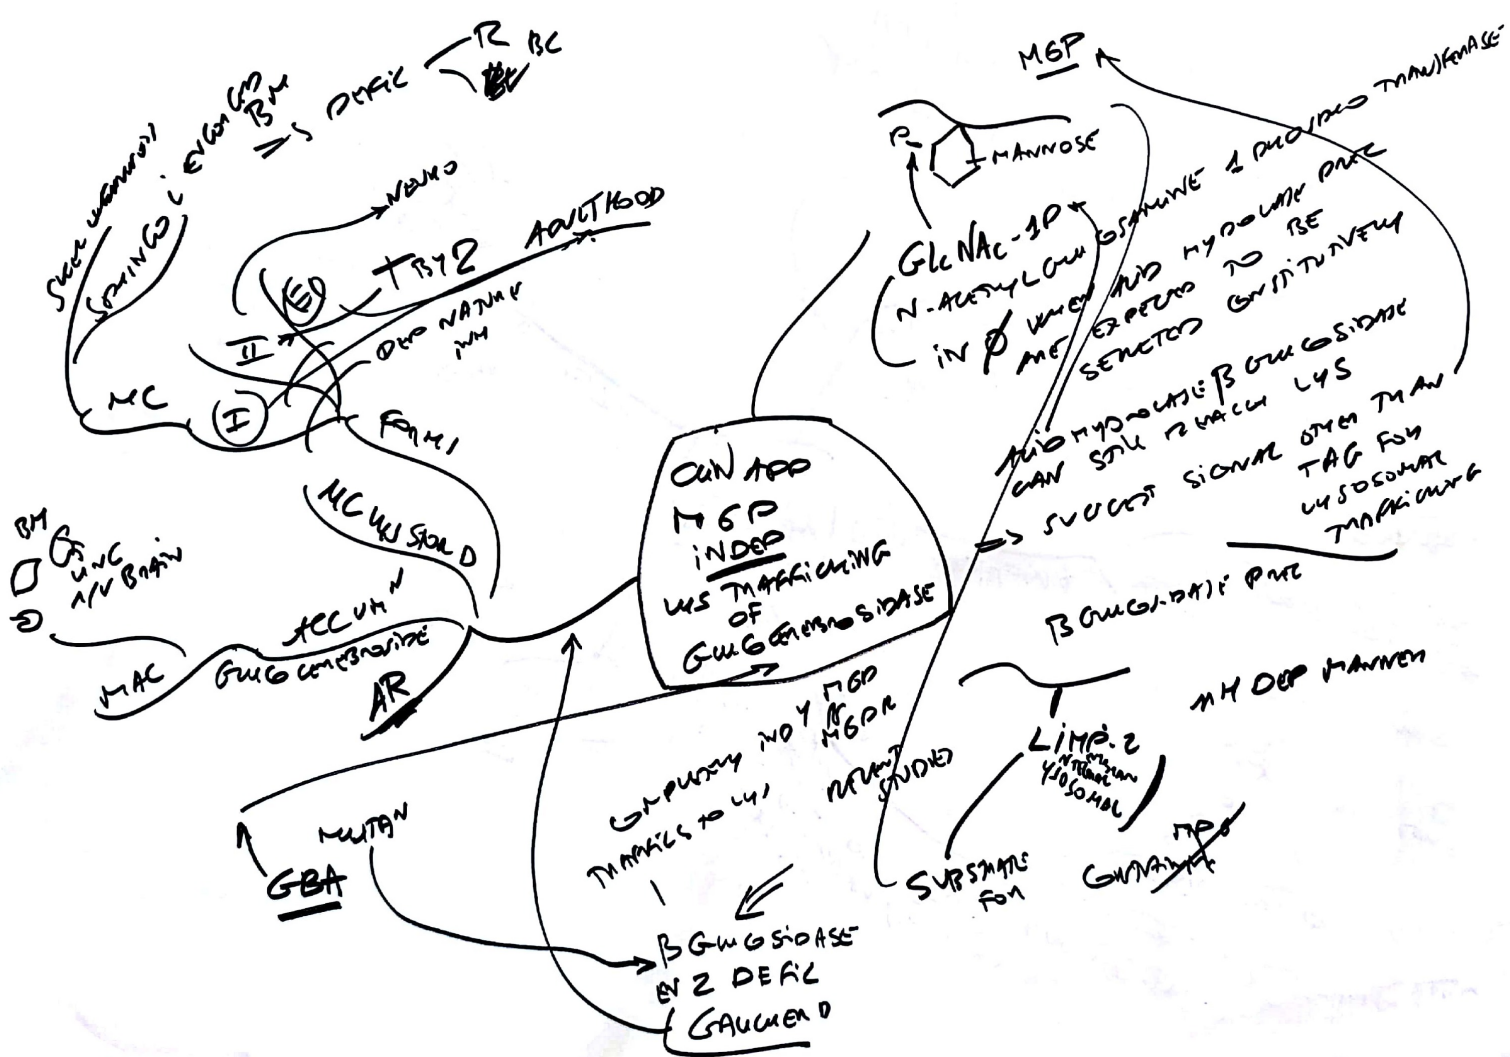 R
BC
S DEFIC
BM
SPHINGO
NEURO
† BY 2
ADULTHOOD
II
DEP NATURE
INH
MC
I
FORMS
MC LYS STOR D
BM
ACCUM N
GLUCOCEREBROSIDE
MAC
AR
CLIN APP
M6P
INDEP
LYS TRAFFICKING
OF
GLUCOCEREBROSIDASE
M6P
P
MANNOSE
GLCNAC-1P
N-ACETYLGLUCOSAMINE 1 PHOSPHO TRANSFERASE
IN Ø WHEN ACID HYDOLASE PREC
ARE EXPECTED TO BE
SECRETED CONSTITUTIVELY
ACID HYDROLASE β GLUCOSIDASE
CAN STILL REACH LYS
=> SUGGEST SIGNAL OTHER THAN
TAG FOR
LYSOSOMAL
TRAFFICKING
β GLUCOSIDASE PREC
PH DEP MANNER
LIMP-2
LYSOSOMAL
SUBSTRATE
FOR
RECENT
STUDIES
COMPLETELY INDY M6P
M6PR
TRAFFICS TO LYS
MUTAN
GBA
β GLUCOSIDASE
EN Z DEFIC
GAUCHER D